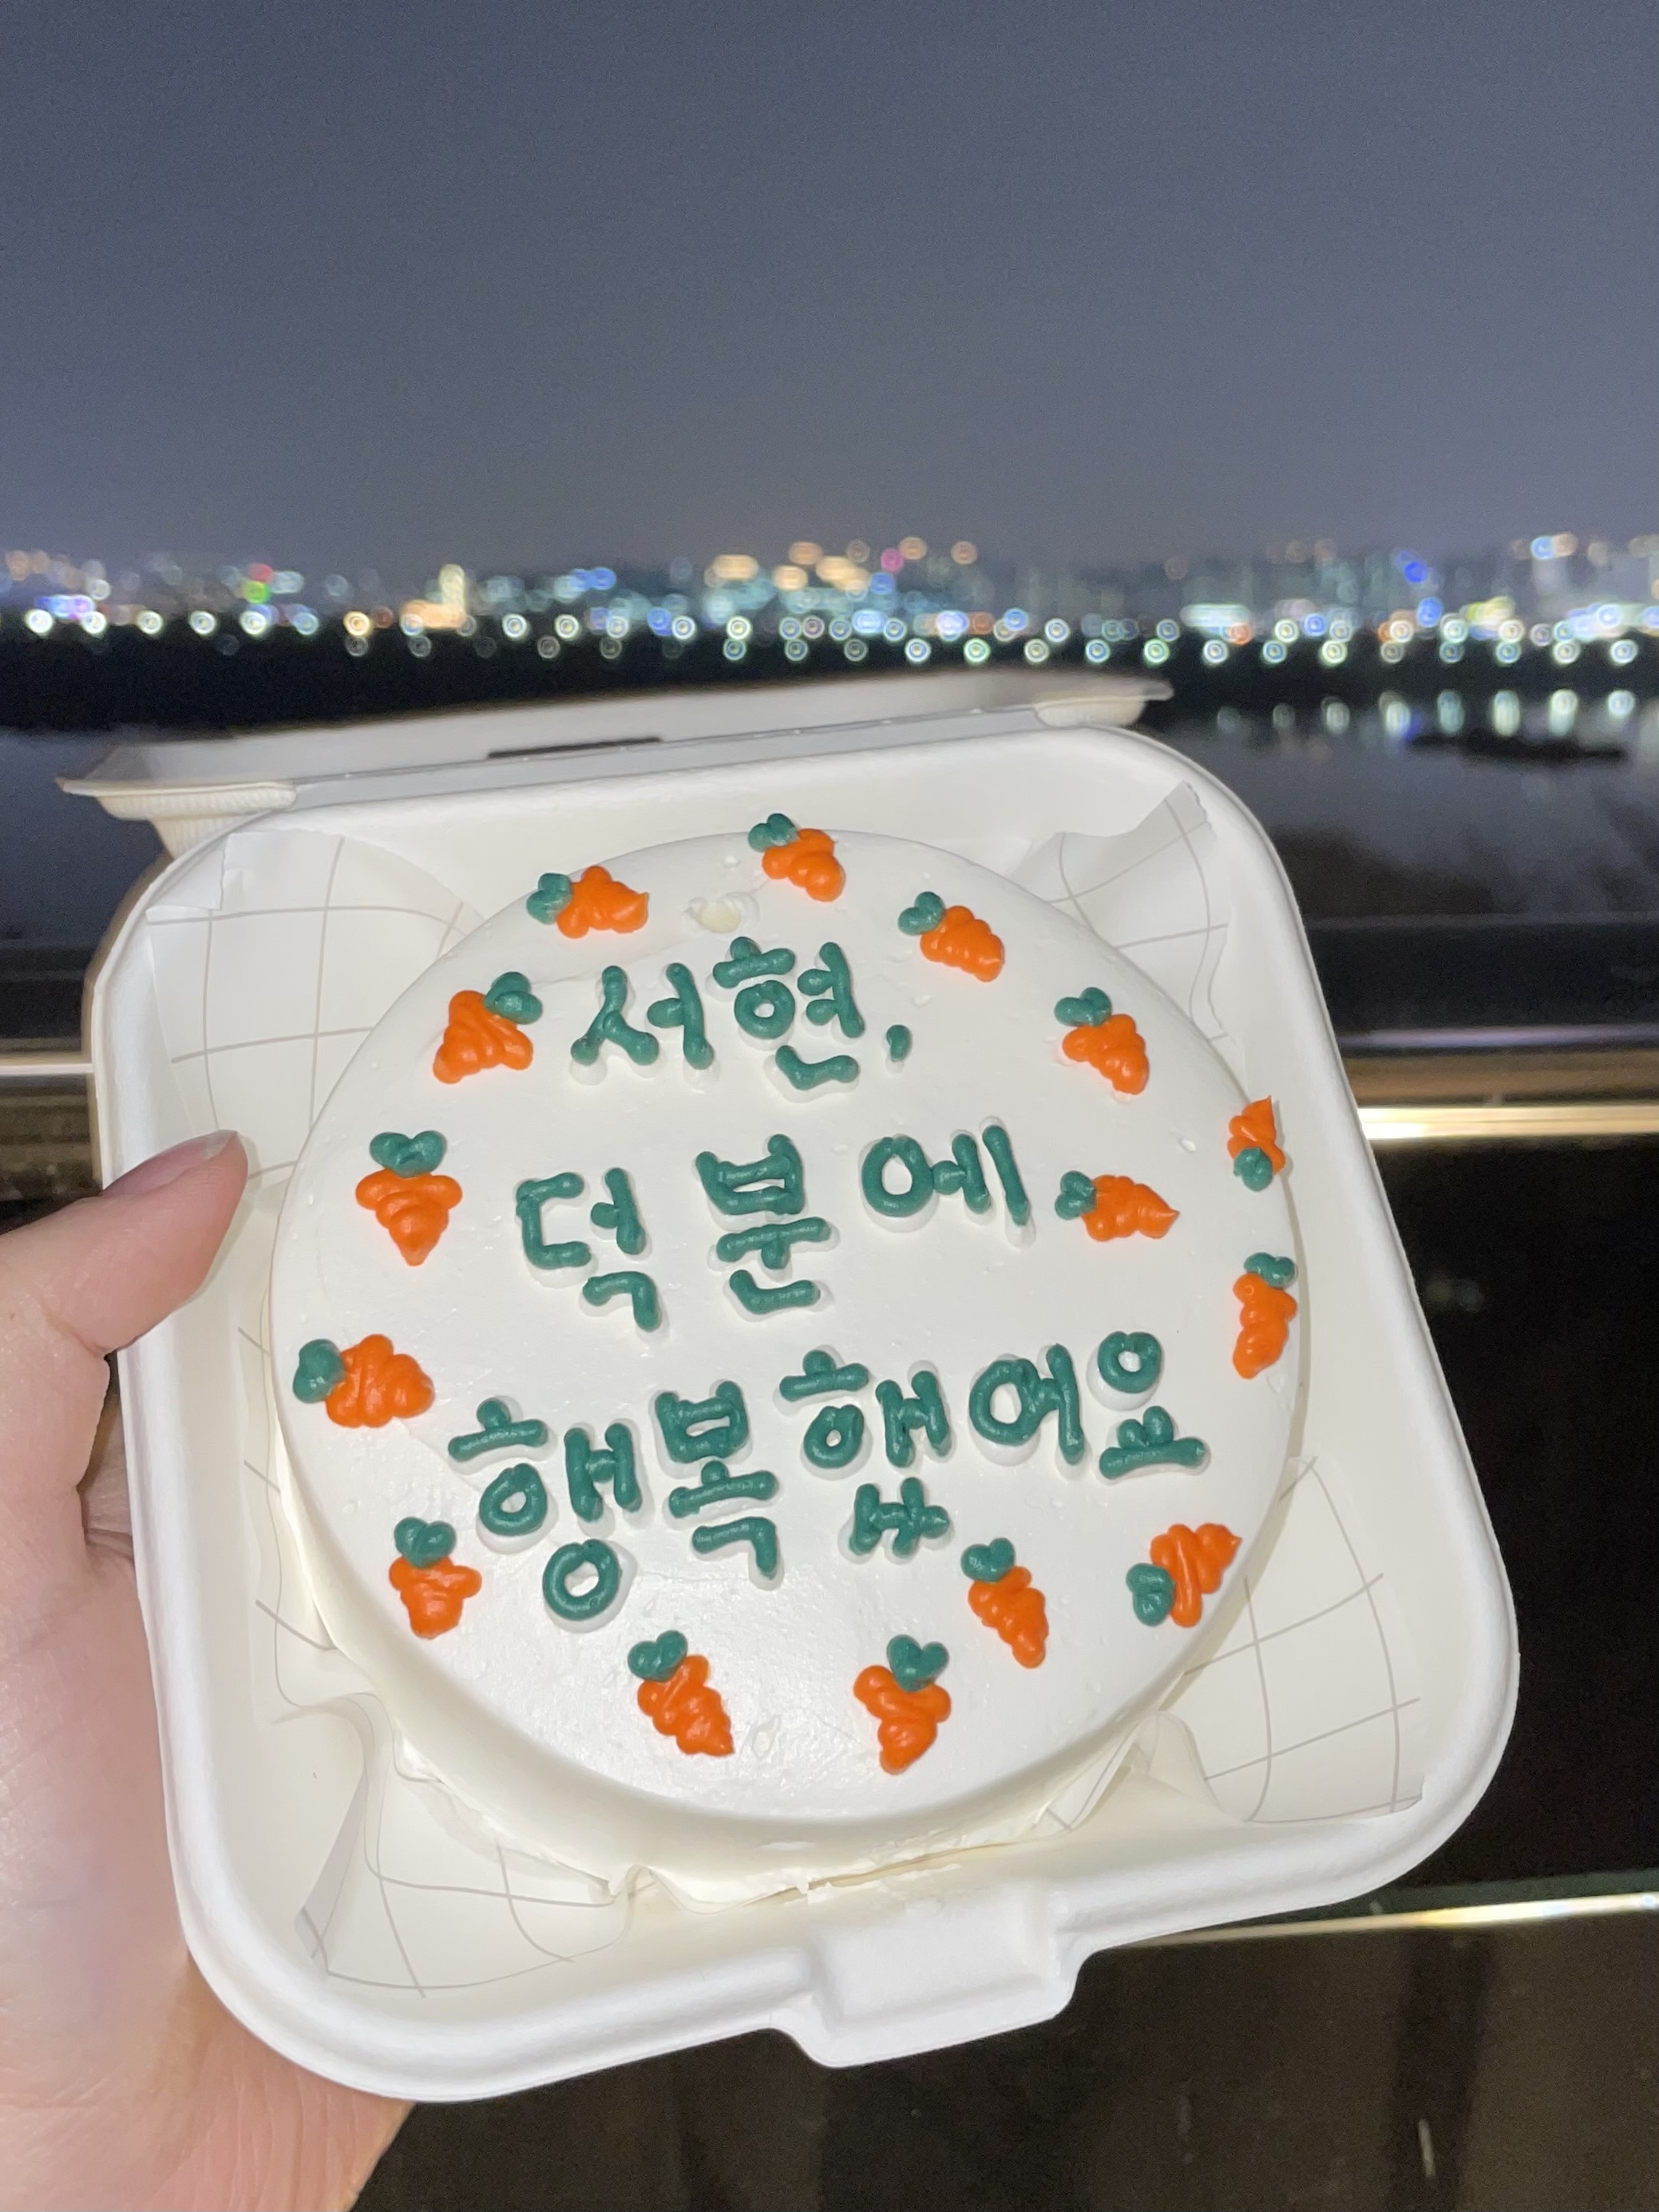 서현,
덕분에
행복했어요